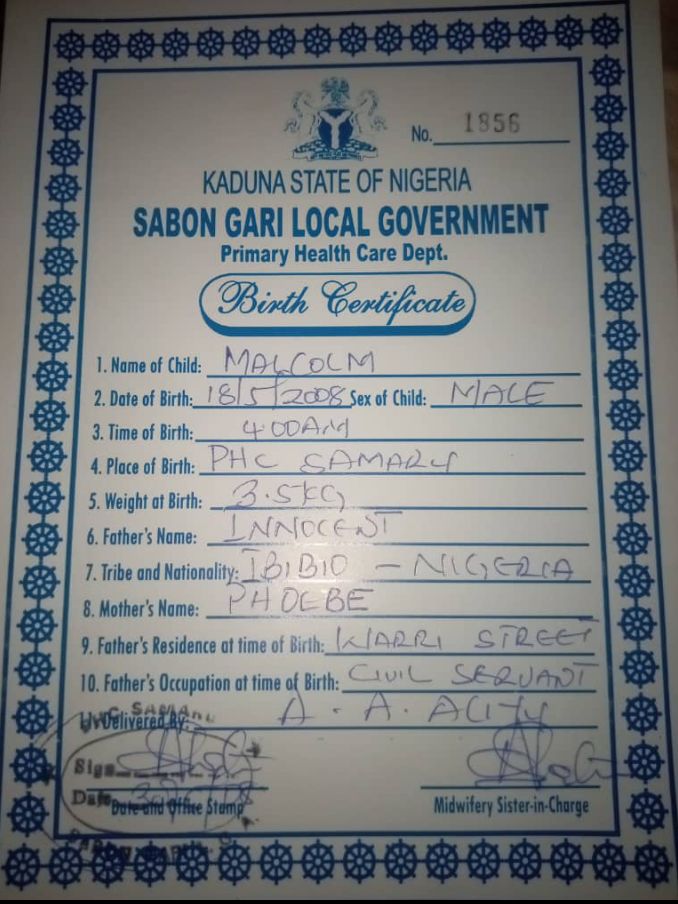 No. 1856
KADUNA STATE OF NIGERIA
SABON GARI LOCAL GOVERNMENT
Primary Health Care Dept.
Birth Certificate
1. Name of Child: MALCOLM
2. Date of Birth: 18/5/2008 Sex of Child: MALE
3. Time of Birth: 4:00AM
4. Place of Birth: PHC SAMARU
5. Weight at Birth: 3.5KG
6. Father's Name: INNOCENT
7. Tribe and Nationality: IBIBIO - NIGERIA
8. Mother's Name: PHOEBE
9. Father's Residence at time of Birth: WARRI STREET
10. Father's Occupation at time of Birth: CIVIL SERVANT
11. Delivered By: A. A.
SAMARU
Sign
Date
Date and Office Stamp
Midwifery Sister-in-Charge